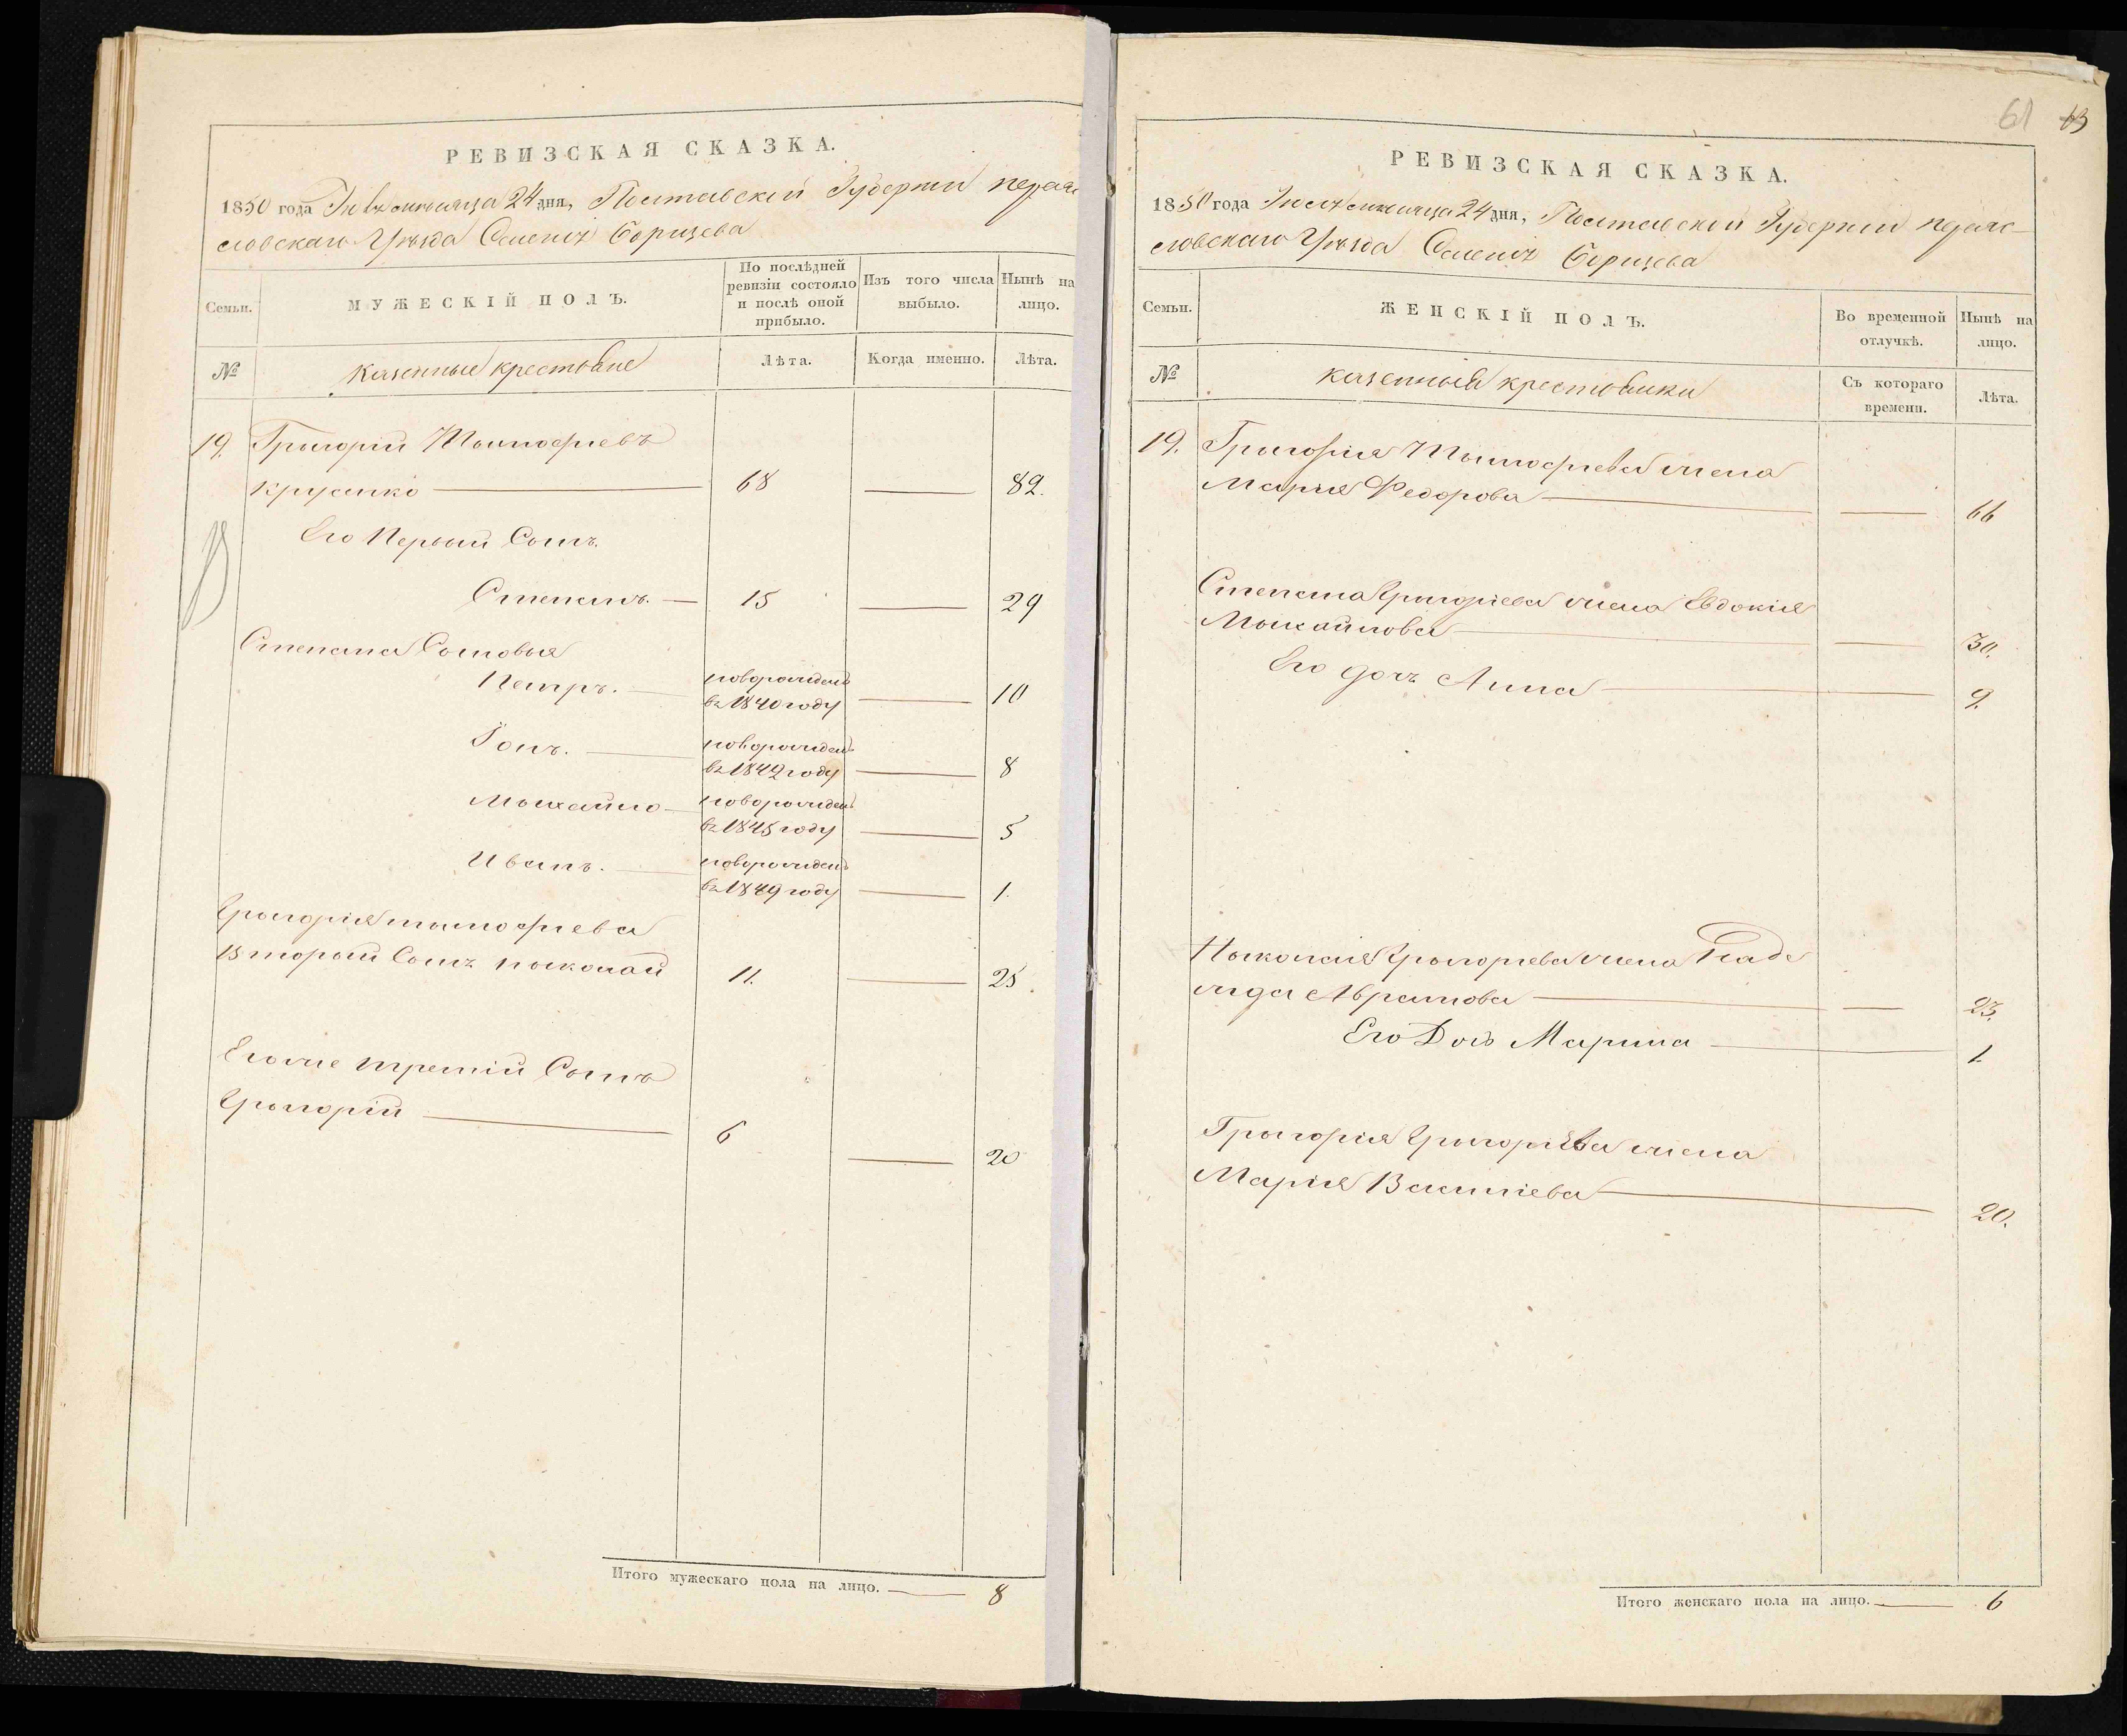 РЕВИЗСКАЯ СКАЗКА.
1850 года Июля месяца 24 дня, Полтавской Губернии переяс
словскаго Уѣзда Селенія Борщева
Семьи.
МУЖЕСКІЙ ПОЛЪ.
По послѣдней
ревизіи состояло
и послѣ оной
прибыло.
Изъ того числа
выбыло.
Нынѣ на
лицо.
№
казенные крестьяне
Лѣта.
Когда именно.
Лѣта.
19. Григорий Тымофіевъ
крусенко 68 82.
Его Первый Сынъ.
Степанъ. 15 29
Степана Сыновья
Петръ. новорожденъ
въ 1840 году 10
Іонъ. новорожденъ
въ 1842 году 8
Мыхайло новорожденъ
въ 1845 году 5
Иванъ. новорожденъ
въ 1849 году 1.
Грыгорія тымофіева
Второй Сынъ ныколай 11. 25.
Его же третій Сынъ
Грыгорій 6 20
Итого мужескаго пола на лицо. 8
61 63
РЕВИЗСКАЯ СКАЗКА.
1850 года Июля месяца 24 дня, Полтавской Губернии переяс
словскаго Уѣзда Селенія Борщева
Семьи.
ЖЕНСКІЙ ПОЛЪ.
Во временной
отлучкѣ.
Нынѣ на
лицо.
№
казенныя крестьянки
Съ котораго
времени.
Лѣта.
19. Григорія Тымофіева жена
Марія Федорова 66
Степана Григоріева жена Евдокія
Мыхайлова 30.
Его дочъ Анна 9.
Ныколая Грыгоріева жена Наде
жда Аврамова 23.
Его Дочъ Марина 1.
Грыгорія Грыгоріева жена
Марія Василіева 20.
Итого женскаго пола на лицо. 6